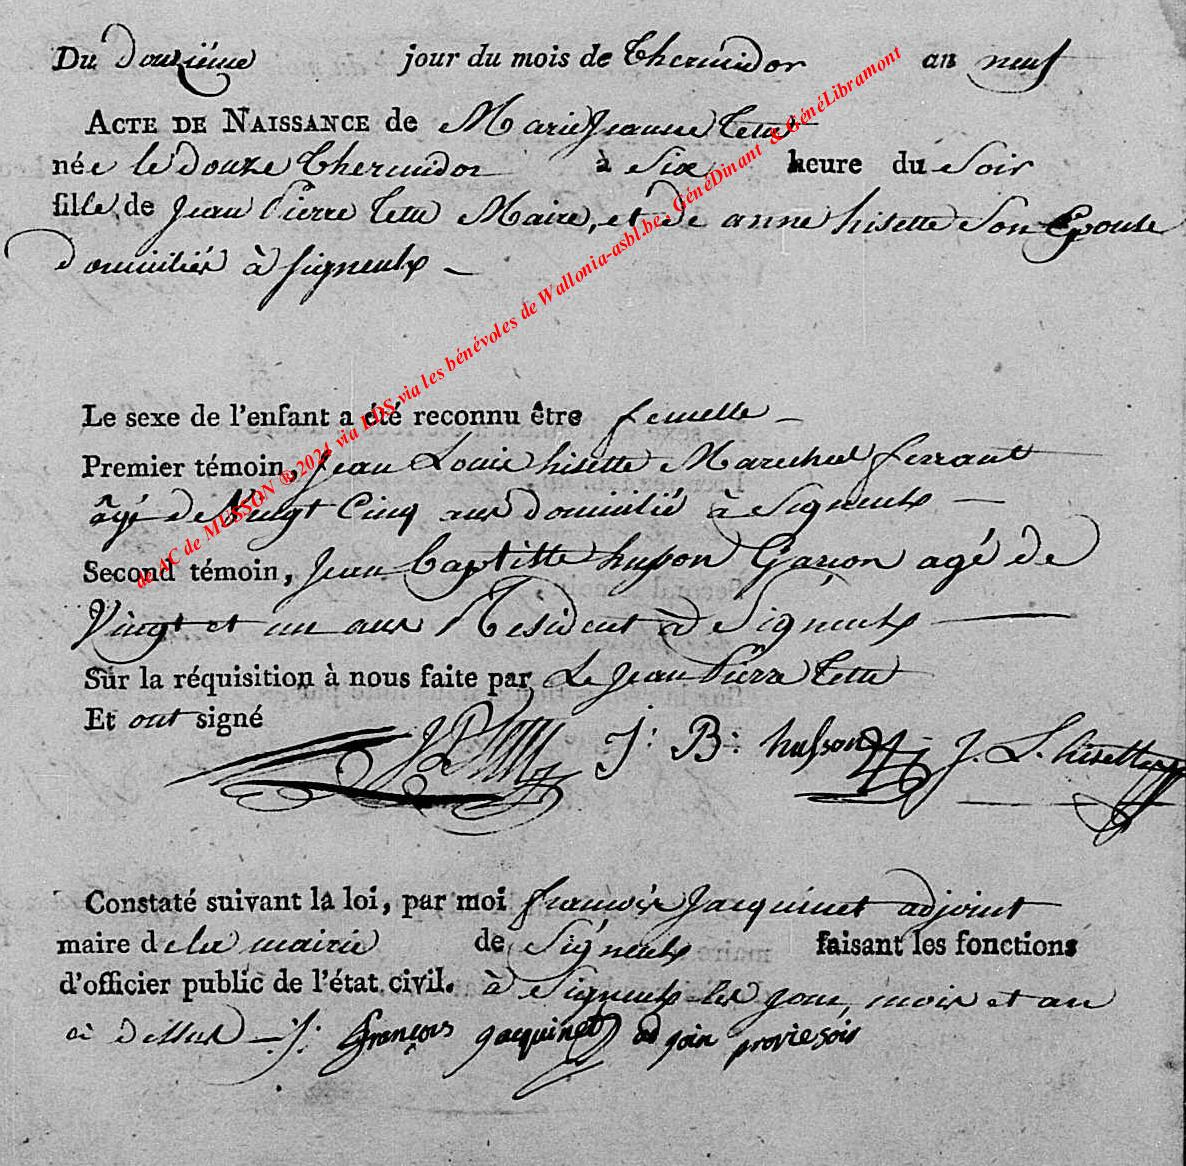 Du douzieme jour du mois de Thermidor an neuf
ACTE DE NAISSANCE de Marie Jeanne Tettu
née le douze Thermidor à Six heure du Soir
fille de Jean Pierre Tettu Maire, et de anne hisette Son Epouse
domiciliés à Signeulx
Le sexe de l'enfant a été reconnu être femelle
Premier témoin, Jean Louis hisette Marechal ferrant
âgé de Vingt Cinq ans domicilié à Signeulx
Second témoin, Jean Baptiste husson Garcon agé de
Vingt et un ans Resident à Signeulx
Sur la réquisition à nous faite par Le Jean Pierre Tettu
Et ont signé
J: B: husson J. L. hisette
Constaté suivant la loi, par moi francois Jacquinet adjoint
maire de la mairie de Signeulx faisant les fonctions
d'officier public de l'état civil. à Signeulx les jour, mois et an
ci dessus françois jacquinet ad join proviesois
de AC de MUSSON ® 2021 via LDS via les bénévoles de Wallonia-asbl.be, GénéDinant & GénéLibramont